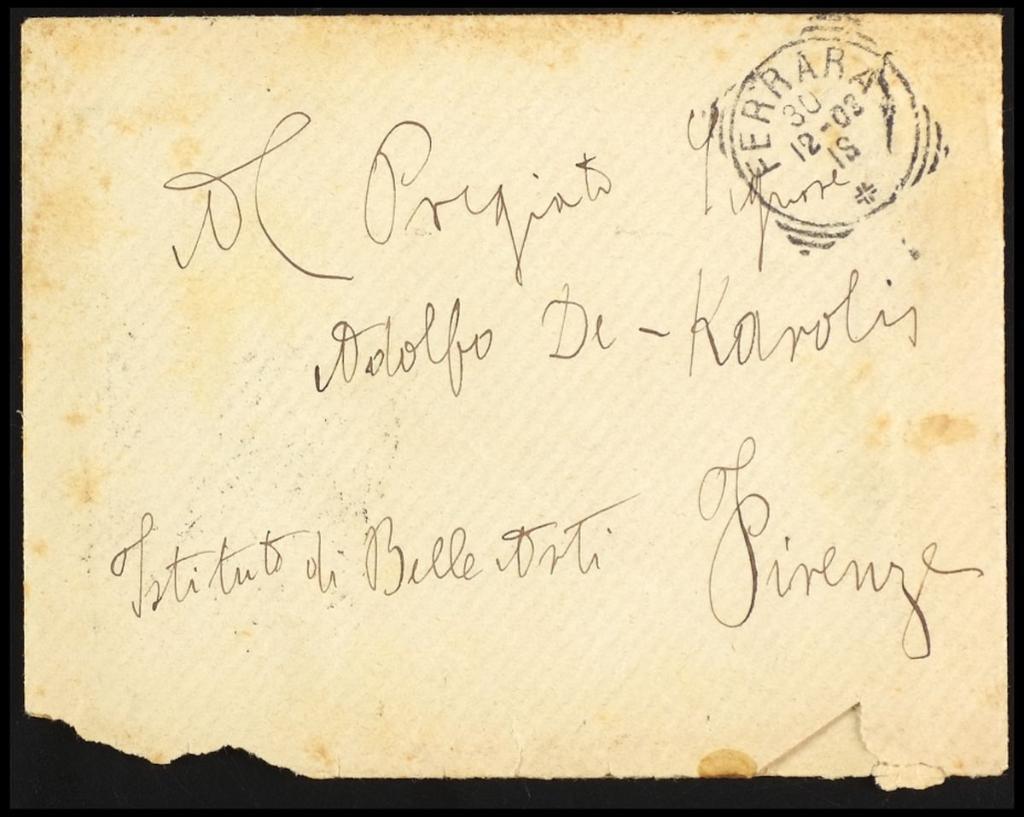 FERRARA
30
12-08
18
Al Pregiato Signore
Adolfo De-Karolis
Istituto di Belle Arti Firenze